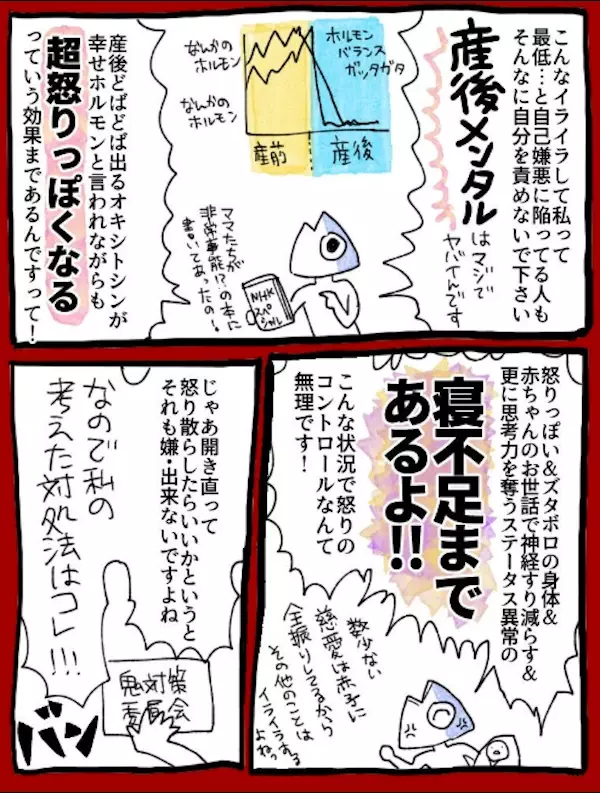 こんなイライラして私って
最低…と自己嫌悪に陥ってる人も
そんなに自分を責めないで下さい
産後メンタル
はマジで
ヤバイんです
ホルモン
バランス
ガッタガタ
なんかの
ホルモン
なんかの
ホルモン
産前
産後
ママたちが
非常事態!?の本に
書いてあったの〜
NHK
スペ
シャル
産後どばどば出るオキシトシンが
幸せホルモンと言われながらも
超怒りっぽくなる
っていう効果まであるんですって!
怒りっぽい&ズタボロの身体&
赤ちゃんのお世話で神経すり減らす&
更に思考力を奪うステータス異常の
寝不足まで
あるよ!!
こんな状況で怒りの
コントロールなんて
無理です!
数少ない
慈愛は赤子に
全振りしてるから
その他のことは
イライラする
よねっ
じゃあ開き直って
怒り散らしたらいいかというと
それも嫌・出来ないですよね
なので私の
考えた対処法はコレ!!!
鬼対策
委員会
バン